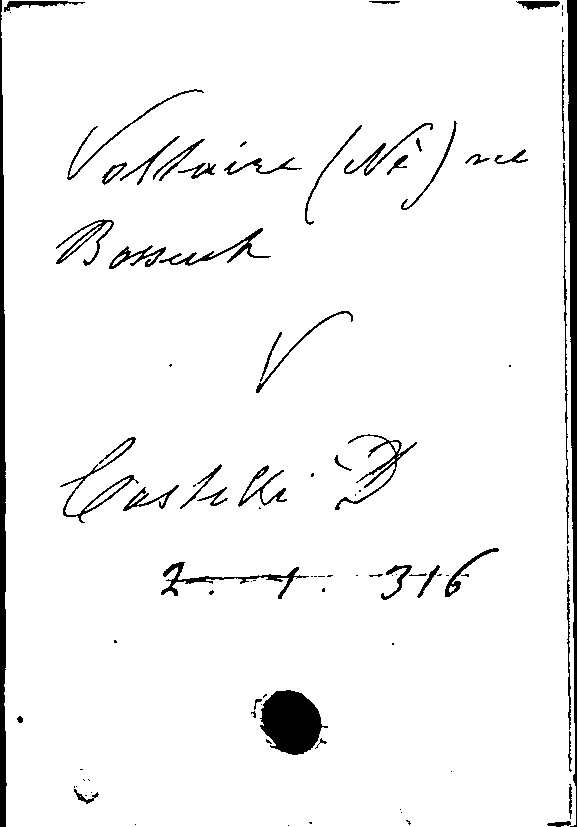 Voltaire (Nè) ne
Bossuet
V
Castelli D
2. 1. 316